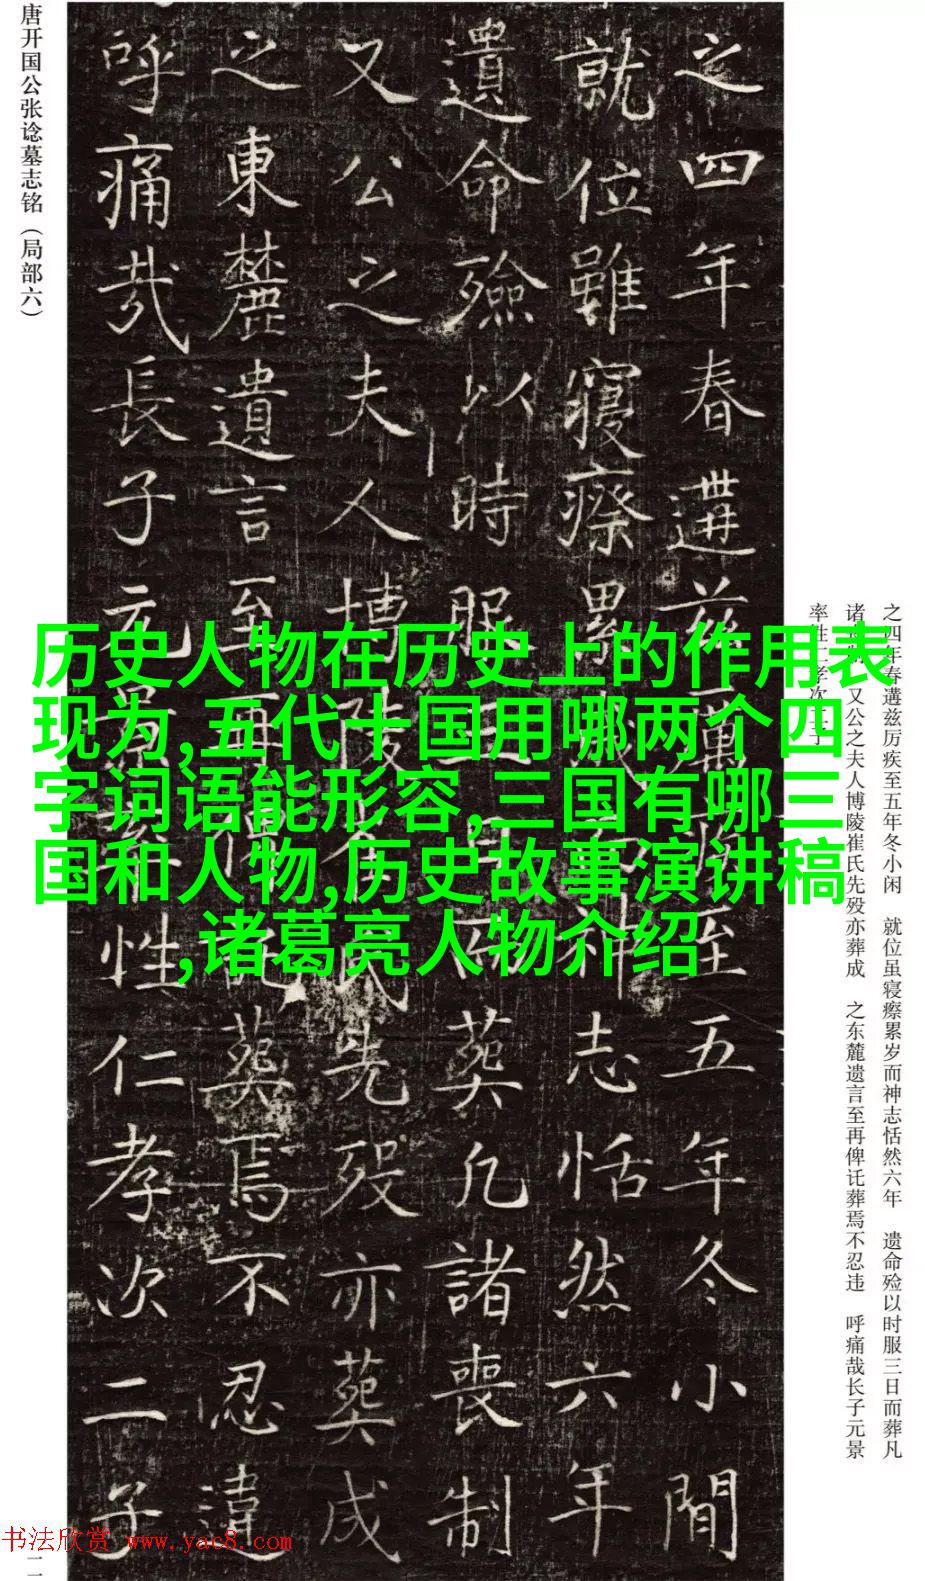 唐开国公张谂墓志铭（局部六）
之四年春遘兹至五年冬小閒
就位雖寢瘵累神志恬然六年
遺命殮以時服三日而葬凡諸喪制
又公之夫人博陵氏先歿亦葬成
之東麓遺言至再葬焉不忍違
呼痛哉長子元景性仁孝次二子
历史人物在历史上的作用表
现为,五代十国用哪两个四
字词语能形容,三国有哪三
国和人物,历史故事演讲稿
,诸葛亮人物介绍
之四年春遘兹厉疾至五年冬小闲　就位虽寝瘵累岁而神志恬然六年　遗命殓以时服三日而葬凡
诸制　又公之夫人博陵崔氏先殁亦葬成　之东麓遗言至再俾讬葬焉不忍违　呼痛哉长子元景
率性仁孝次二子
书法欣赏 www.yac8.com
二